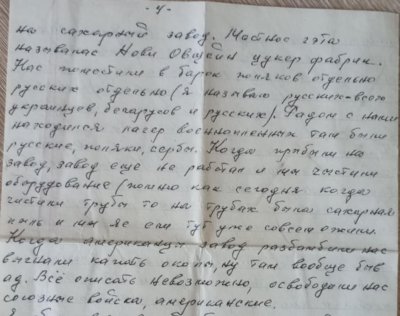 - 4 -
на сахарный завод. Частнос гэта
называлас Нови Овшдин цукер фабрик.
Нас поместили в барак поляков отдельно
русских отдельно (я называю русских-всех
украинцев, беларусов и русских). Рядом с нами
находился лагер военнопленных там были
русские, поляки, сербы. Когда прибыли на
завод, завод еще не работал и мы чистили
оборудование (помню как сегодня когда
чистили трубы то на трубах была сахарная
пыль и мы яе ели тут уже совсем ожили.
Когда американцы завод разбомбили нас
выгнали капать окопы, ну там вообще быв
ад. Всё описать невозможно, освободили нас
союзные войска, американские.